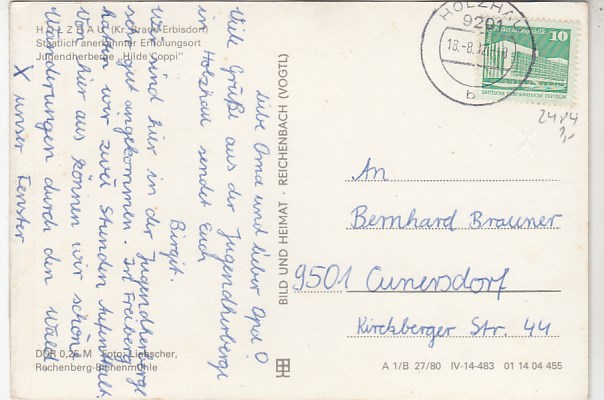 HOLZHAU (Kr. Brand-Erbisdorf)
Staatlich anerkannter Erholungsort
Jugendherberge "Hilde Coppi"
Liebe Oma und lieber Opa!
Viele Grüße aus der Jugendherberge
in Holzhau sendet Euch
Birgit.
Wir sind hier in der Jugendherberge
sehr gut angekommen. In Freiberg
hatten wir zwei Stunden Aufenthalt.
Von hier aus können wir schöne
Wanderungen durch den Wald
X unser Fenster
DDR 0,25 M Foto: Liebscher,
Rechenberg-Bienenmühle
BILD UND HEIMAT · REICHENBACH (VOGTL)
HOLZHAU
9201
b
10
2484
An
Bernhard Brauner
9501 Cunersdorf
Kirchberger Str. 44
A 1/B 27/80 IV-14-483 01 14 04 455